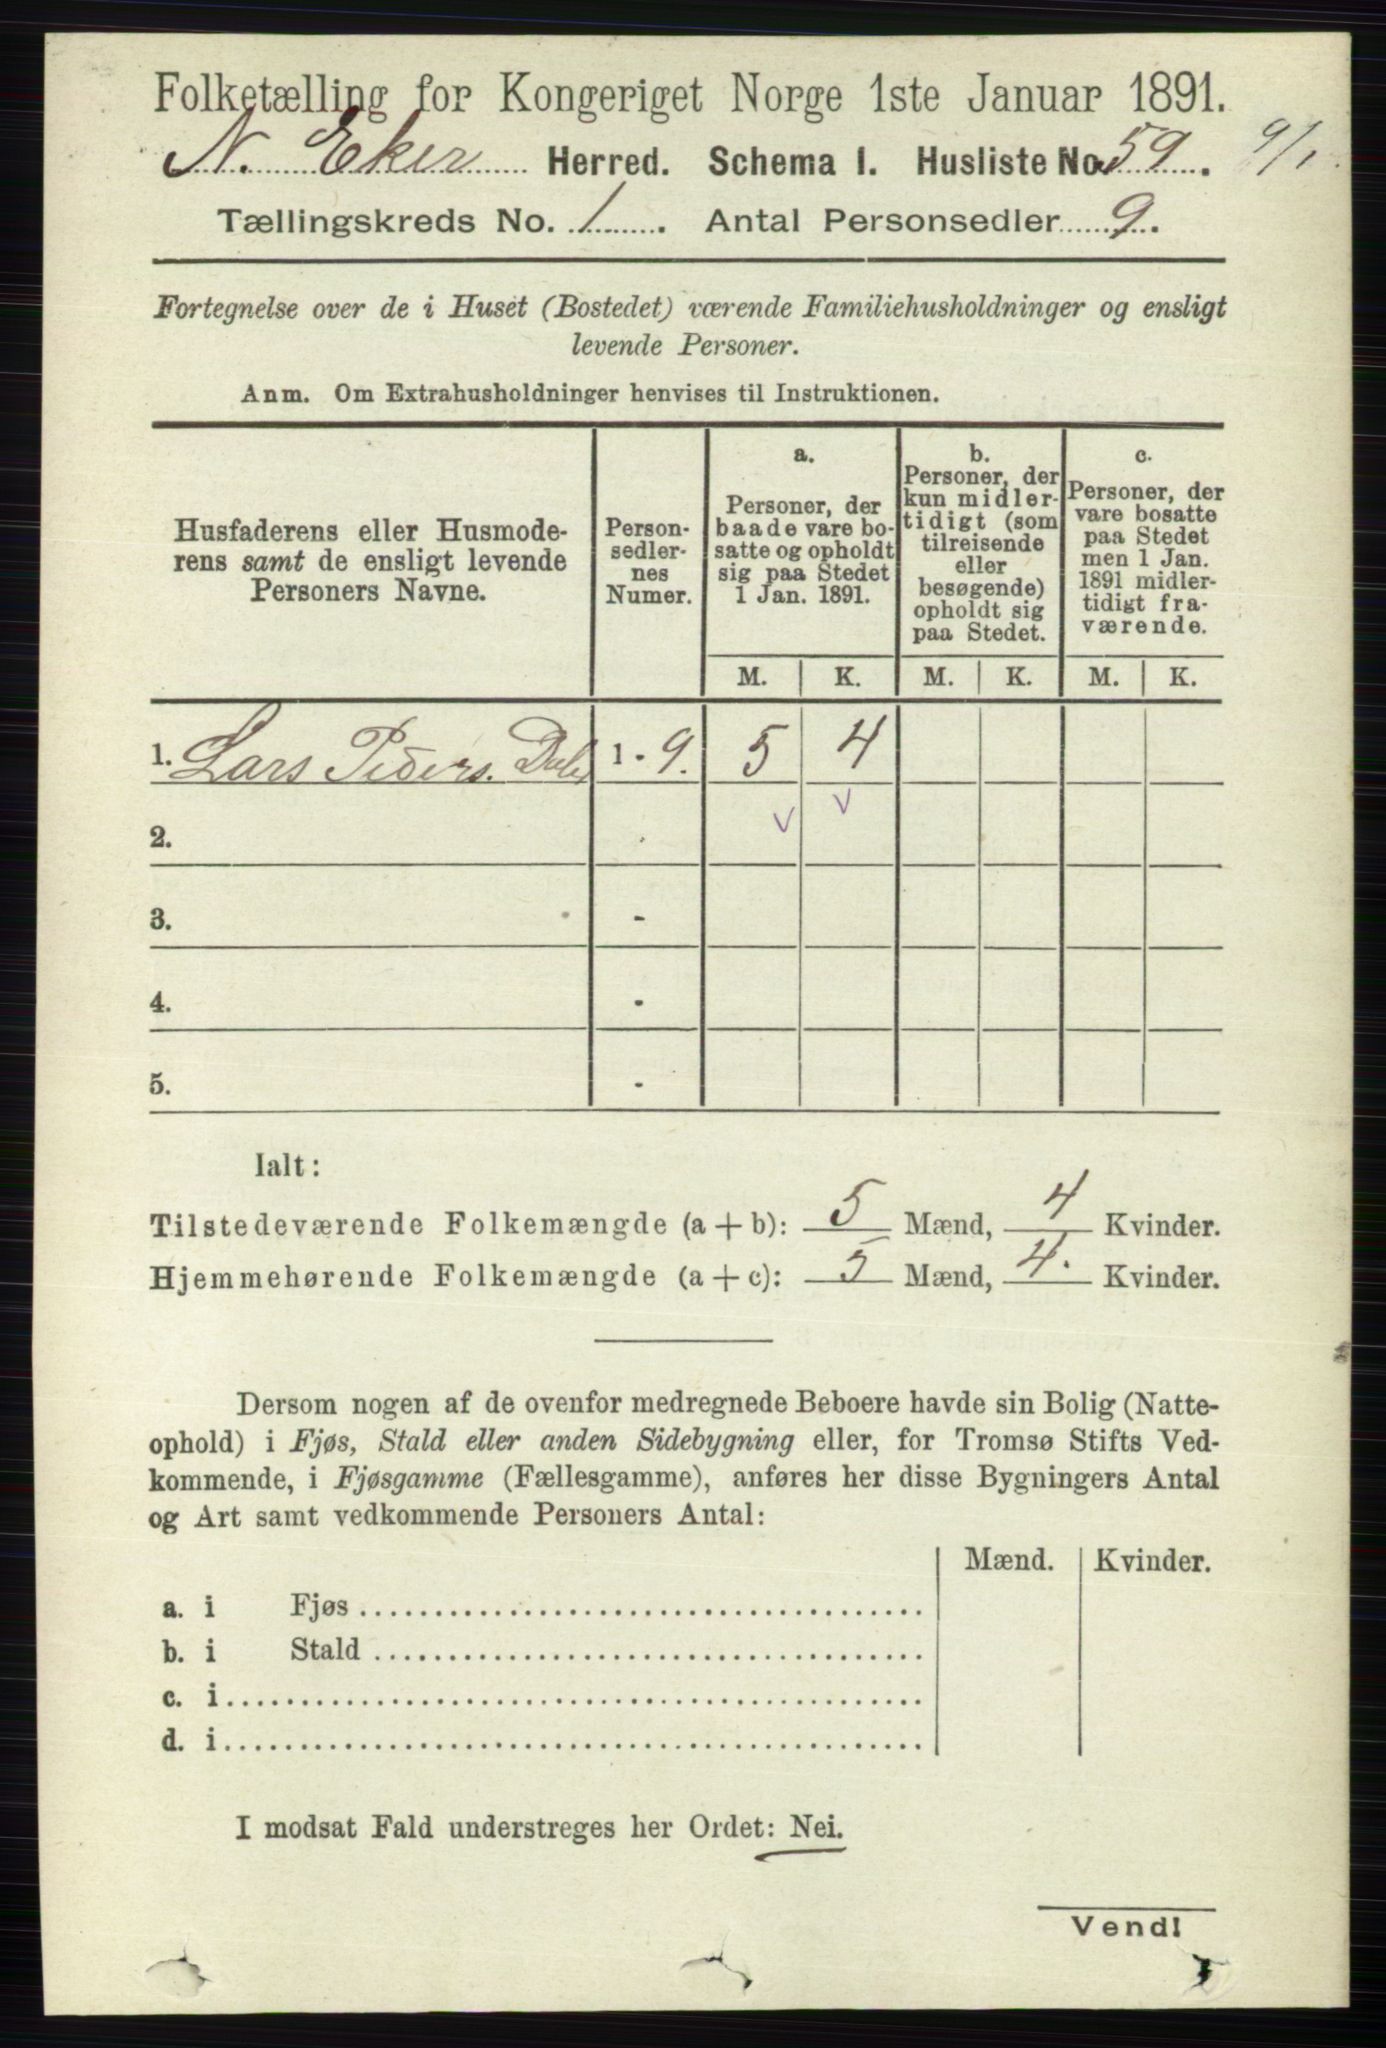 Folketælling for Kongeriget Norge 1ste Januar 1891.
N. Eker Herred. Schema I. Husliste No. 59. 9/1
Tællingskreds No. 1. Antal Personsedler 9.
Fortegnelse over de i Huset (Bostedet) værende Familiehusholdninger og ensligt
levende Personer.
Anm. Om Extrahusholdninger henvises til Instruktionen.
Husfaderens eller Husmode-
rens samt de ensligt levende
Personers Navne.
Person-
sedler-
nes
Numer.
a.
Personer, der
baade vare bo-
satte og opholdt
sig paa Stedet
1 Jan. 1891.
b.
Personer, der
kun midler-
tidigt (som
tilreisende
eller
besøgende)
opholdt sig
paa Stedet.
c.
Personer, der
vare bosatte
paa Stedet
men 1 Jan.
1891 midler-
tidigt fra-
værende.
M. K. M. K. M. K.
1. Lars Peders. 1 - 9. 5 4
2. -
3. -
4. -
5. -
Ialt:
Tilstedeværende Folkemængde (a + b): 5 Mænd, 4 Kvinder.
Hjemmehørende Folkemængde (a + c): 5 Mænd, 4. Kvinder.
Dersom nogen af de ovenfor medregnede Beboere havde sin Bolig (Natte-
ophold) i Fjøs, Stald eller anden Sidebygning eller, for Tromsø Stifts Ved-
kommende, i Fjøsgamme (Fællesgamme), anføres her disse Bygningers Antal
og Art samt vedkommende Personers Antal:
Mænd. Kvinder.
a. i Fjøs
b. i Stald
c. i
d. i
I modsat Fald understreges her Ordet: Nei.
Vend!